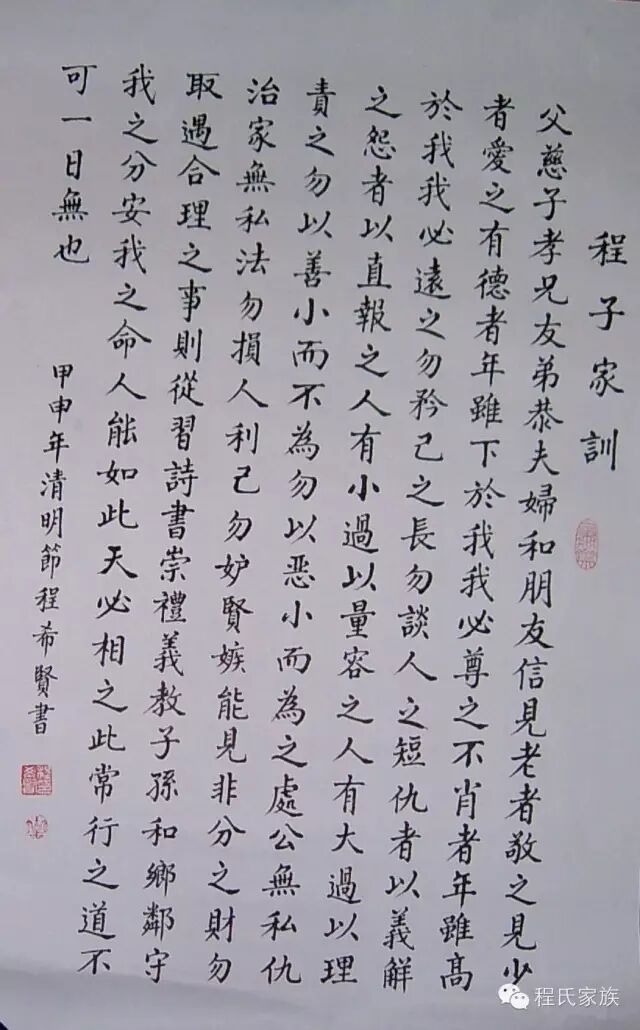 程子家訓
父慈子孝兄友弟恭夫婦和朋友信見老者敬之見少
者愛之有德者年雖下於我我必尊之不肖者年雖高
於我我必遠之勿矜己之長勿談人之短仇者以義解
之怨者以直報之人有小過以量容之人有大過以理
責之勿以善小而不為勿以惡小而為之處公無私仇
治家無私法勿損人利己勿妒賢嫉能見非分之財勿
取遇合理之事則從習詩書崇禮義教子孫和鄉鄰守
我之分安我之命人能如此天必相之此常行之道不
可一日無也
甲申年清明節程希賢書
程氏家族